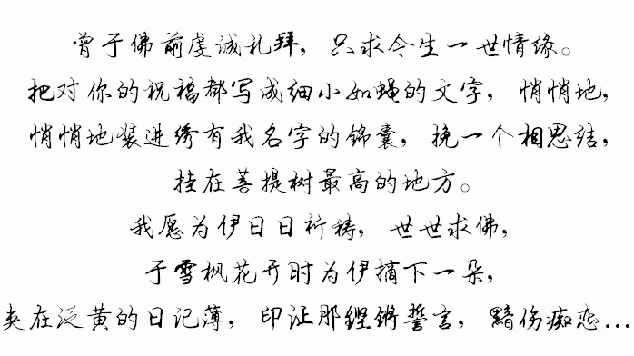 曾于佛前虔诚礼拜，只求今生一世情缘。
把对你的祝福都写成细小如蝇的文字，悄悄地，
悄悄地装进绣有我名字的锦囊，挽一个相思结，
挂在菩提树最高的地方。
我愿为伊日日祈祷，世世求佛，
于雪枫花开时为伊摘下一朵，
夹在泛黄的日记薄，印让那铿锵誓言，黯伤痴恋...